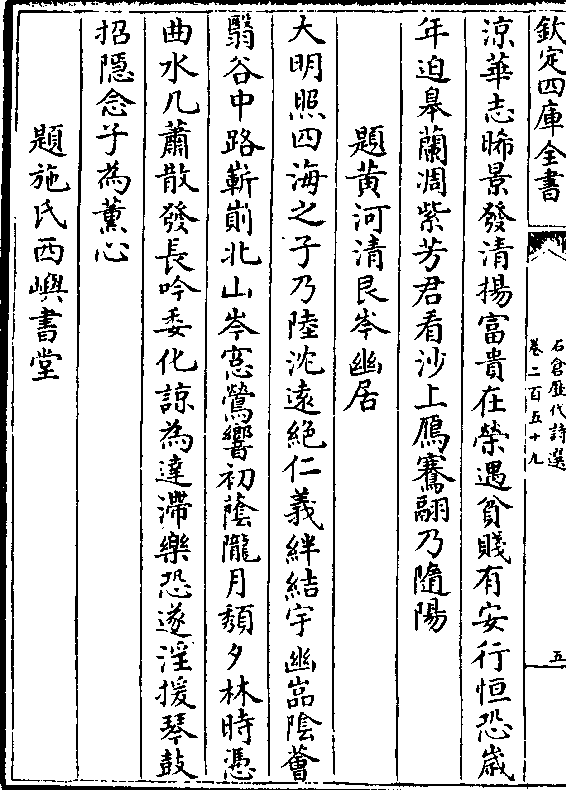 欽定四庫全書
石倉歷代詩選
卷二百五十九
五
涼華志晞景發清揚富貴在榮遇貧賤有安行恒恐歲
年迫皋蘭凋紫芳君看沙上鴈騫翮乃隨陽
題黄河清艮岑幽居
大明照四海之子乃陸沈遠絶仁義絆結宇幽嵓陰薈
翳谷中路嶄崱北山岑窓鶯響初蔭隴月頽夕林時憑
曲水几蕭散發長吟委化諒為達滯樂恐遂淫援琴鼓
招隠念子為薫心
題施氏西嶼書堂